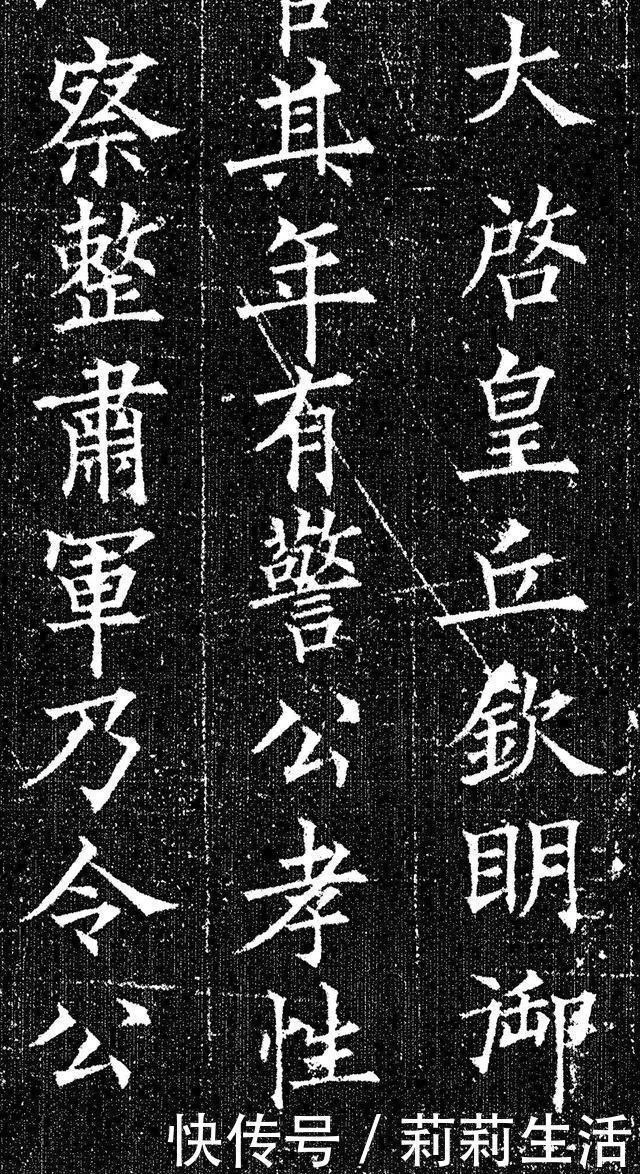 大啓皇丘欽眀御
其年有警公孝性
察整肅軍乃令公
快传号/莉莉生活